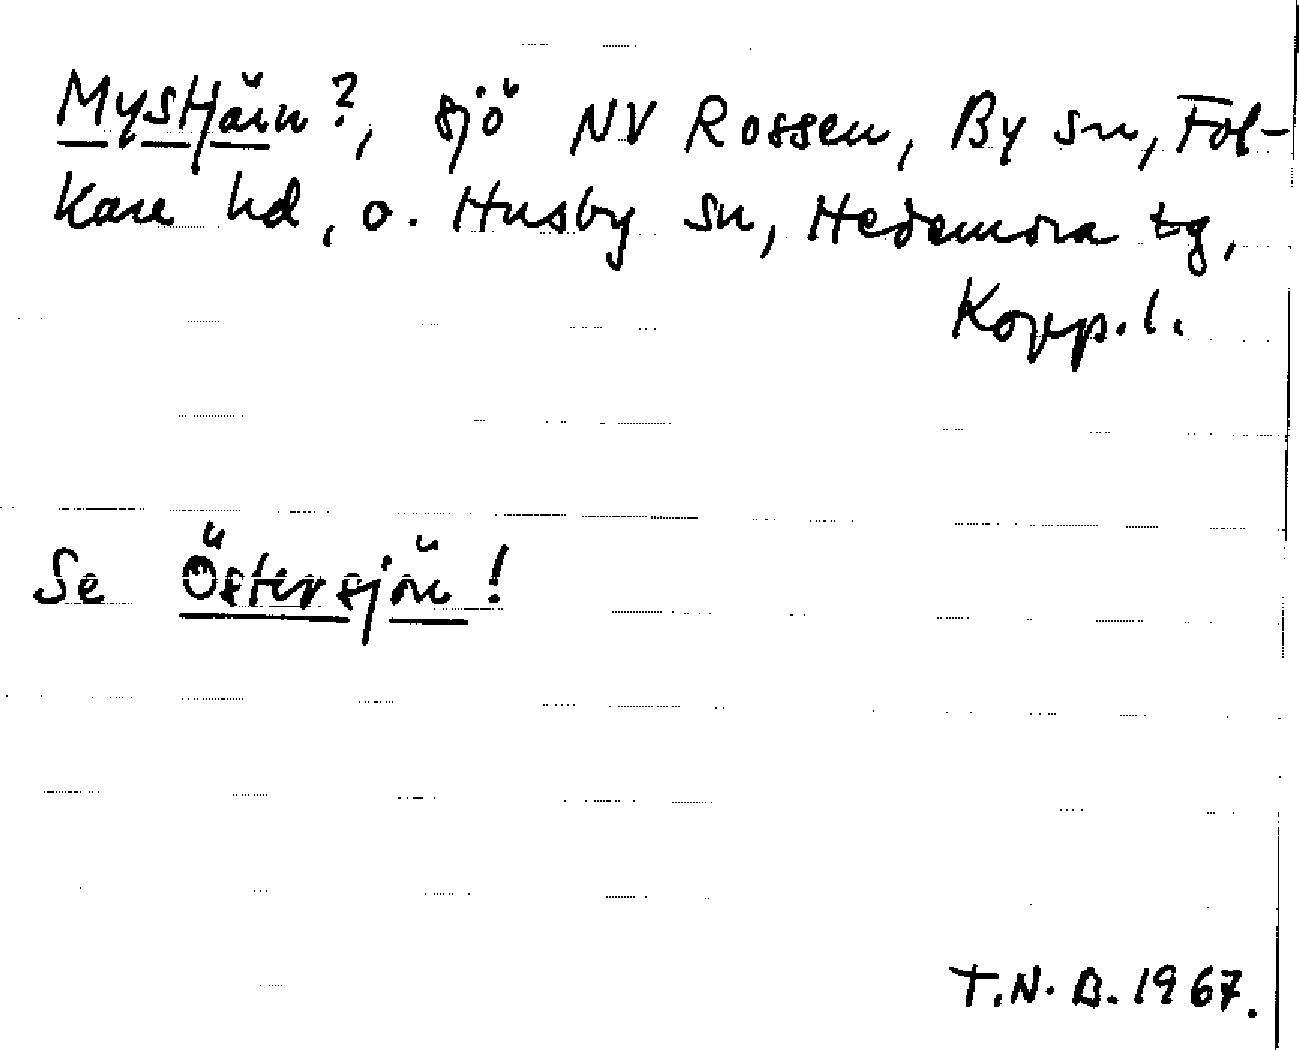 Mystjärn?, sjö NV Rossen, By sn, Fol-
kare hd, o. Husby sn, Hedemora tg,
Kopp.l.
Se Östersjön!
T.N.B. 1967.